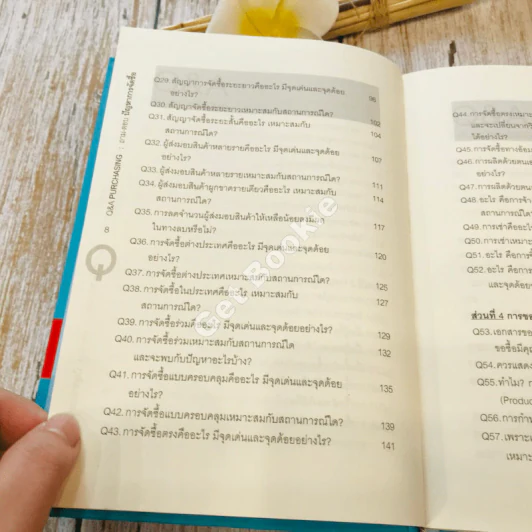 Q29. สัญญาการจัดซื้อระยะยาวคืออะไร มีจุดเด่นและจุดด้อย
อย่างไร? 98
Q30. สัญญาจัดซื้อระยะยาวเหมาะสมกับสถานการณ์ใด? 102
Q31. สัญญาจัดซื้อระยะสั้นคืออะไร เหมาะสมกับ 104
สถานการณ์ใด?
Q32. ผู้ส่งมอบสินค้าหลายรายคืออะไร มีจุดเด่นและจุดด้อย 107
อย่างไร?
Q33. ผู้ส่งมอบสินค้าหลายรายเหมาะสมกับสถานการณ์ใด? 111
Q34. ผู้ส่งมอบสินค้าผูกขาดรายเดียวคืออะไร เหมาะสมกับ 114
สถานการณ์ใด?
Q35. การลดจำนวนผู้ส่งมอบสินค้าให้เหลือน้อยลงมีผล 117
ในทางลบหรือไม่?
Q36. การจัดซื้อต่างประเทศคืออะไร มีจุดเด่นและจุดด้อย 120
อย่างไร?
Q37. การจัดซื้อต่างประเทศเหมาะสมกับสถานการณ์ใด? 125
Q38. การจัดซื้อในประเทศคืออะไร เหมาะสมกับ 127
สถานการณ์ใด?
Q39. การจัดซื้อร่วมคืออะไร มีจุดเด่นและจุดด้อยอย่างไร? 129
Q40. การจัดซื้อร่วมเหมาะสมกับสถานการณ์ใด 132
และจะพบกับปัญหาอะไรบ้าง?
Q41. การจัดซื้อแบบครอบคลุมคืออะไร มีจุดเด่นและจุดด้อย 135
อย่างไร?
Q42. การจัดซื้อแบบครอบคลุมเหมาะสมกับสถานการณ์ใด? 139
Q43. การจัดซื้อตรงคืออะไร มีจุดเด่นและจุดด้อยอย่างไร? 141
8 Q&A PURCHASING | ถาม-ตอบ ปัญหาการจัดซื้อ
Q44. การจัดซื้อตรงเหมาะ
และจะเปลี่ยนจาก
ได้อย่างไร?
Q45. การจัดซื้อทางอ้อม
Q46. การผลิตด้วยตน
Q47. การผลิตด้วยตน
Q48. อะไร คือการจ้า
สถานการณ์ใด
Q49. การเช่าคืออะไร
Q50. การเช่าเหมาะ
Q51. อะไร คือการ
Q52. อะไร คือการ
และจุดด้อย
ส่วนที่ 4 การขอ
Q53. เอกสารของ
ขอซื้อมีคุณ
Q54. ควรแสดง
Q55. ทำไม? ก
(Produc
Q56. การกำห
Q57. เพราะเ
เหมาะ
Get Bookie